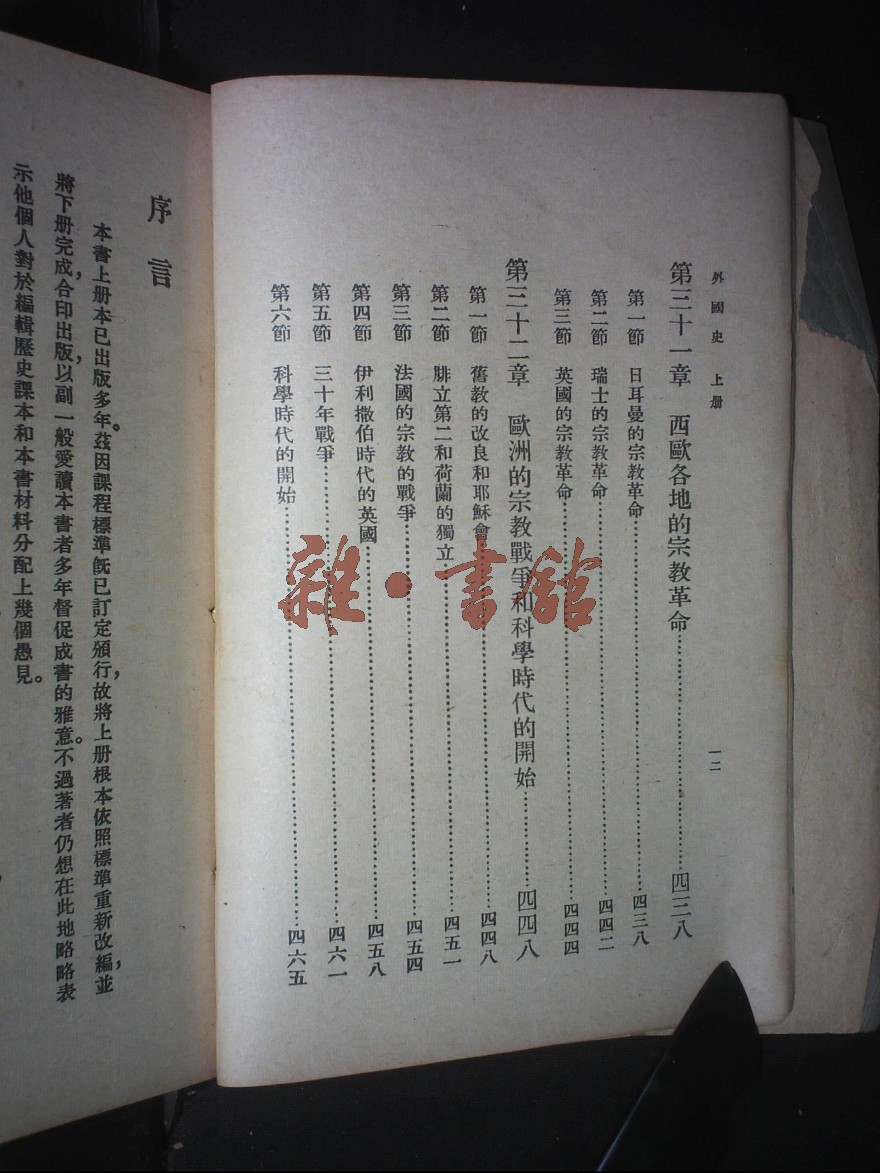 外國史 上册
一二
第三十一章 西歐各地的宗教革命……四三八
第一節 日耳曼的宗教革命……四三八
第二節 瑞士的宗教革命……四四二
第三節 英國的宗教革命……四四四
第三十二章 歐洲的宗教戰爭和科學時代的開始……四四八
第一節 舊教的改良和耶穌會……四四八
第二節 腓立第二和荷蘭的獨立……四五一
第三節 法國的宗教的戰爭……四五四
第四節 伊利撒伯時代的英國……四五八
第五節 三十年戰爭……四六一
第六節 科學時代的開始……四六五
序言
本書上册本已出版多年。茲因課程標準旣已訂定頒行，故將上册根本依照標準重新改編，並
將下册完成，合印出版，以副一般愛讀本書者多年督促成書的雅意。不過著者仍想在此地略略表
示他個人對於編輯歷史課本和本書材料分配上幾個愚見。
雜·書館